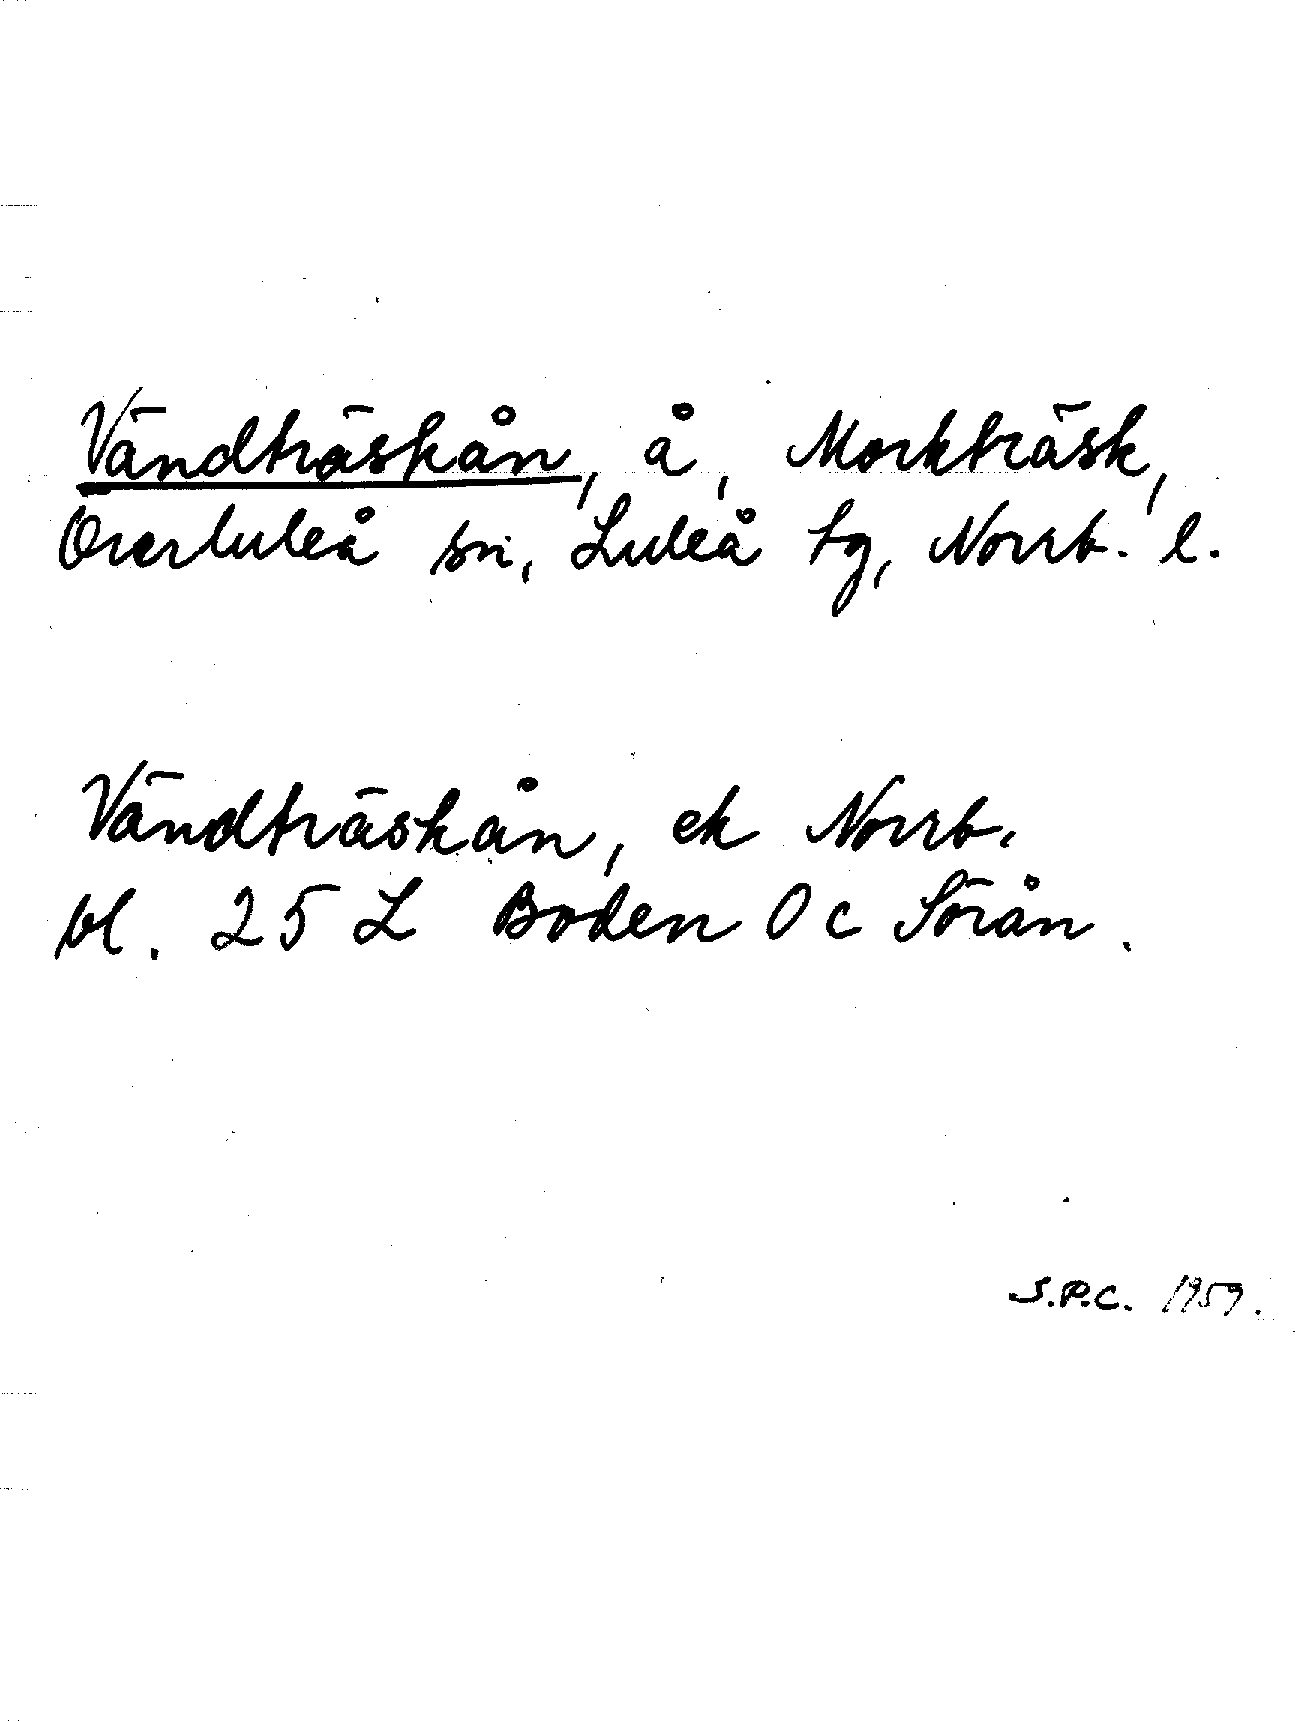 Vändträskån, å, Morkträsk,
Överluleå sn, Luleå tg, Norrb. l.
Vändträskån, ek Norrb.
bl. 25 L Boden 0 c Sörån.
S.P.C. 1959.